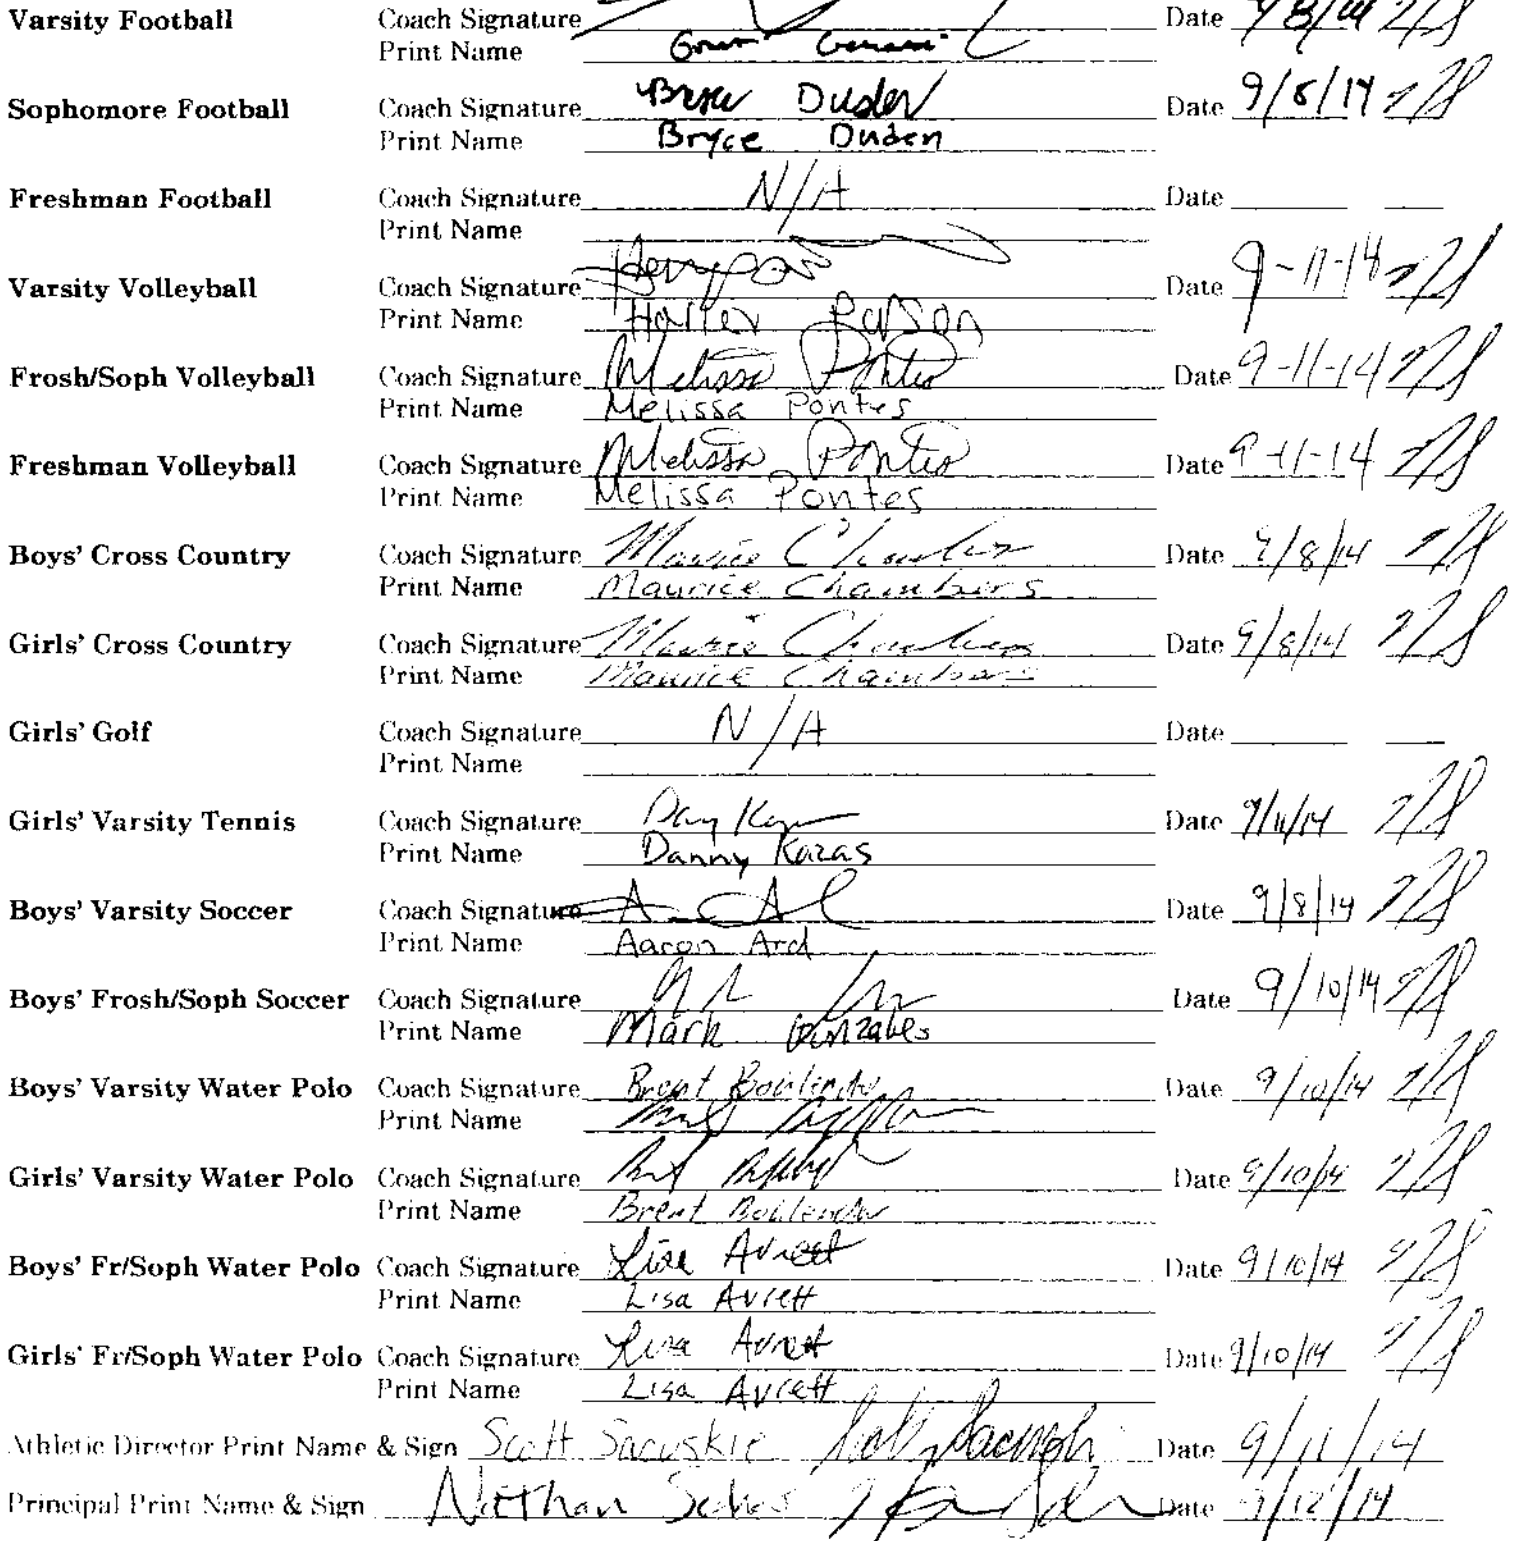 Varsity Football Coach Signature Date 9/8/14
Print Name
Sophomore Football Coach Signature Bryce Duden Date 9/8/14
Print Name Bryce Duden
Freshman Football Coach Signature N/A Date
Print Name
Varsity Volleyball Coach Signature Date 9-11-14
Print Name
Frosh/Soph Volleyball Coach Signature Melissa Pontes Date 9-11-14
Print Name Melissa Pontes
Freshman Volleyball Coach Signature Melissa Pontes Date 9-11-14
Print Name Melissa Pontes
Boys' Cross Country Coach Signature Maurice Chambers Date 9/8/14
Print Name Maurice Chambers
Girls' Cross Country Coach Signature Maurice Chambers Date 9/8/14
Print Name Maurice Chambers
Girls' Golf Coach Signature N/A Date
Print Name
Girls' Varsity Tennis Coach Signature Date 9/11/14
Print Name Danny Kazas
Boys' Varsity Soccer Coach Signature Date 9/8/14
Print Name Aaron Ard
Boys' Frosh/Soph Soccer Coach Signature Date 9/10/14
Print Name Mark Gonzales
Boys' Varsity Water Polo Coach Signature Brent Bohlender Date 9/10/14
Print Name
Girls' Varsity Water Polo Coach Signature Date 9/10/14
Print Name Brent Bohlender
Boys' Fr/Soph Water Polo Coach Signature Lisa Avrett Date 9/10/14
Print Name Lisa Avrett
Girls' Fr/Soph Water Polo Coach Signature Lisa Avrett Date 9/10/14
Print Name Lisa Avrett
Athletic Director Print Name & Sign Scott Date 9/11/14
Principal Print Name & Sign Nathan Date 9/12/14